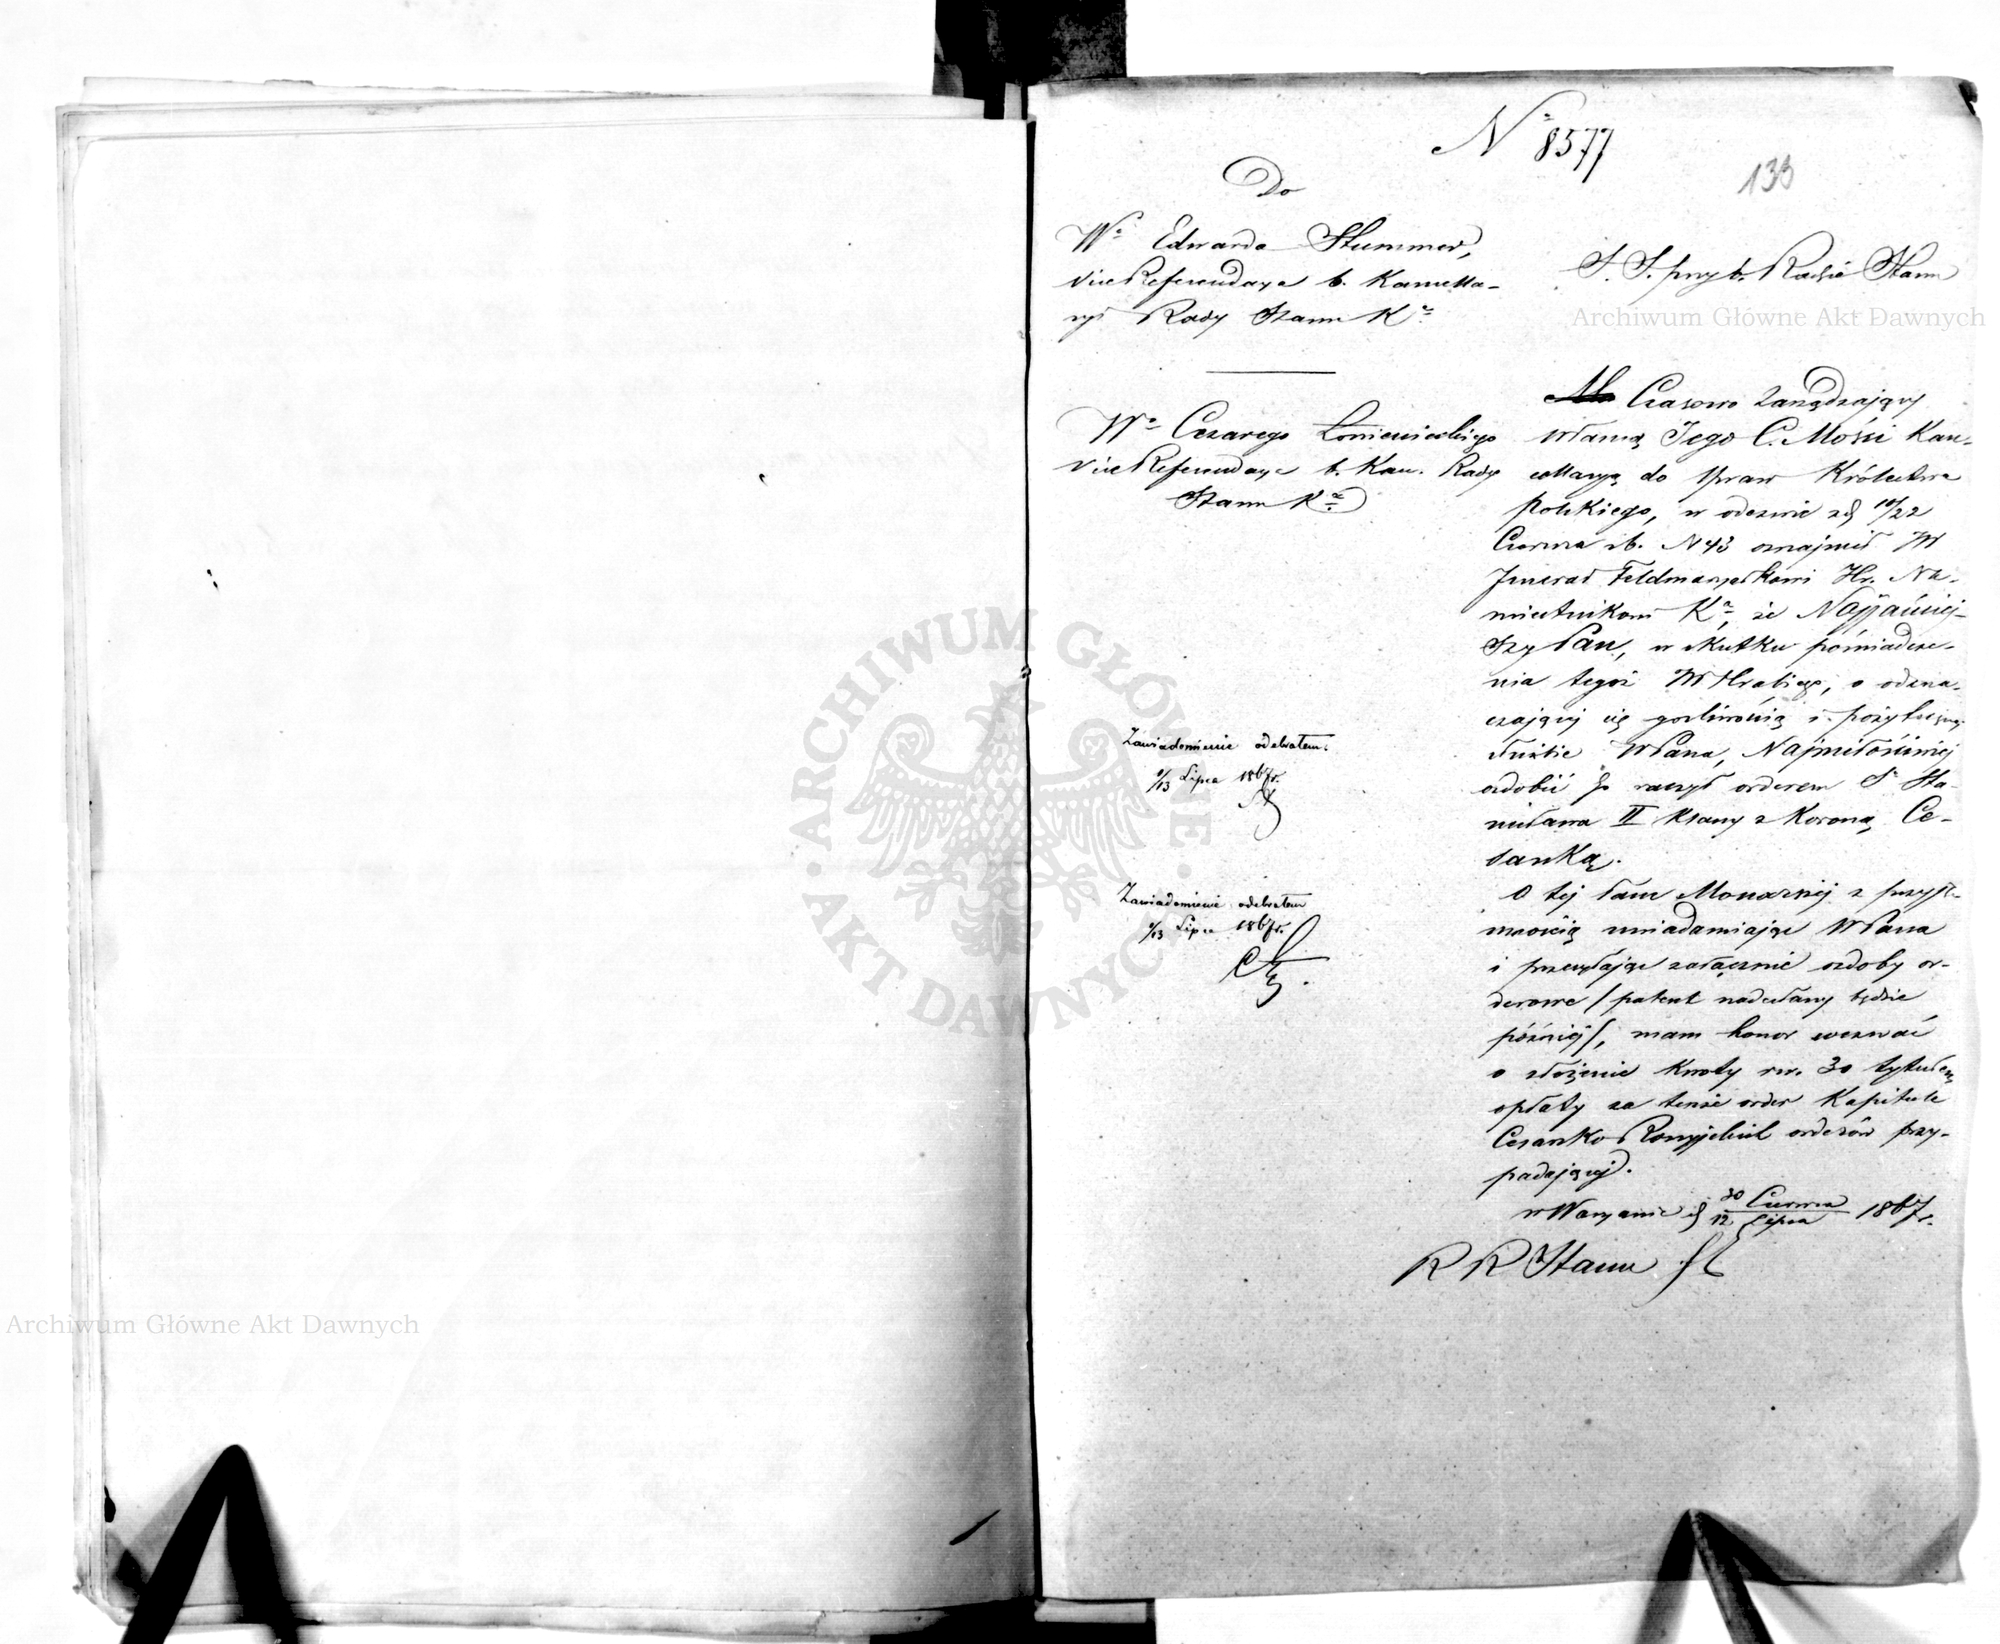 No 8577
133
Do
Wo Edwarda Stummer,
Vice Referendarza b. Kancella-
ryi Rady Stanu Ka
S. S. przy b. Radzie Stanu
Archiwum Główne Akt Dawnych
Wo Cezarego Łoniewskiego
Vice Referendarza b. Kan. Rady
Stanu Ka
Czasowo Zarządzający
własną Jego C. Mości Kan-
cellaryą do spraw Królestwa
polskiego, w odezwie z d 10/22
Czerwca rb. N 43 oznajmił JW
Jenerał Feldmarszałkowi Hr. Na-
miestnikowi Ka, że Najjaśniej-
szy Pan, w skutku poświadcze-
nia tegoż JW Hrabiego, o odzna-
czającej się gorliwością i pożyteczną
służbie WPana, Najmiłościwiej
ozdobić go raczył orderem So Sta-
nisława II klassy z Koroną Ce-
sarską.
O tej łasce Monarszej z przyje-
mnością uwiadamiając WPana
i przesyłając załącznie ozdoby or-
derowe / patent nadesłany będzie
później /, mam honor wezwać
o złożenie kwoty rsr. 30 tytułem
opłaty za tenże order Kapitule
Cesarsko Rossyjskich orderów przy-
padającej.
w Warszawie d 30 Czerwca / 12 Lipca 1867 r.
R R Stanu
Zawiadomienie odebrałem
1/13 Lipca 1867 r.
Zawiadomienie odebrałem
1/13 Lipca 1867 r.
ARCHIWUM GŁÓWNE AKT DAWNYCH
Archiwum Główne Akt Dawnych